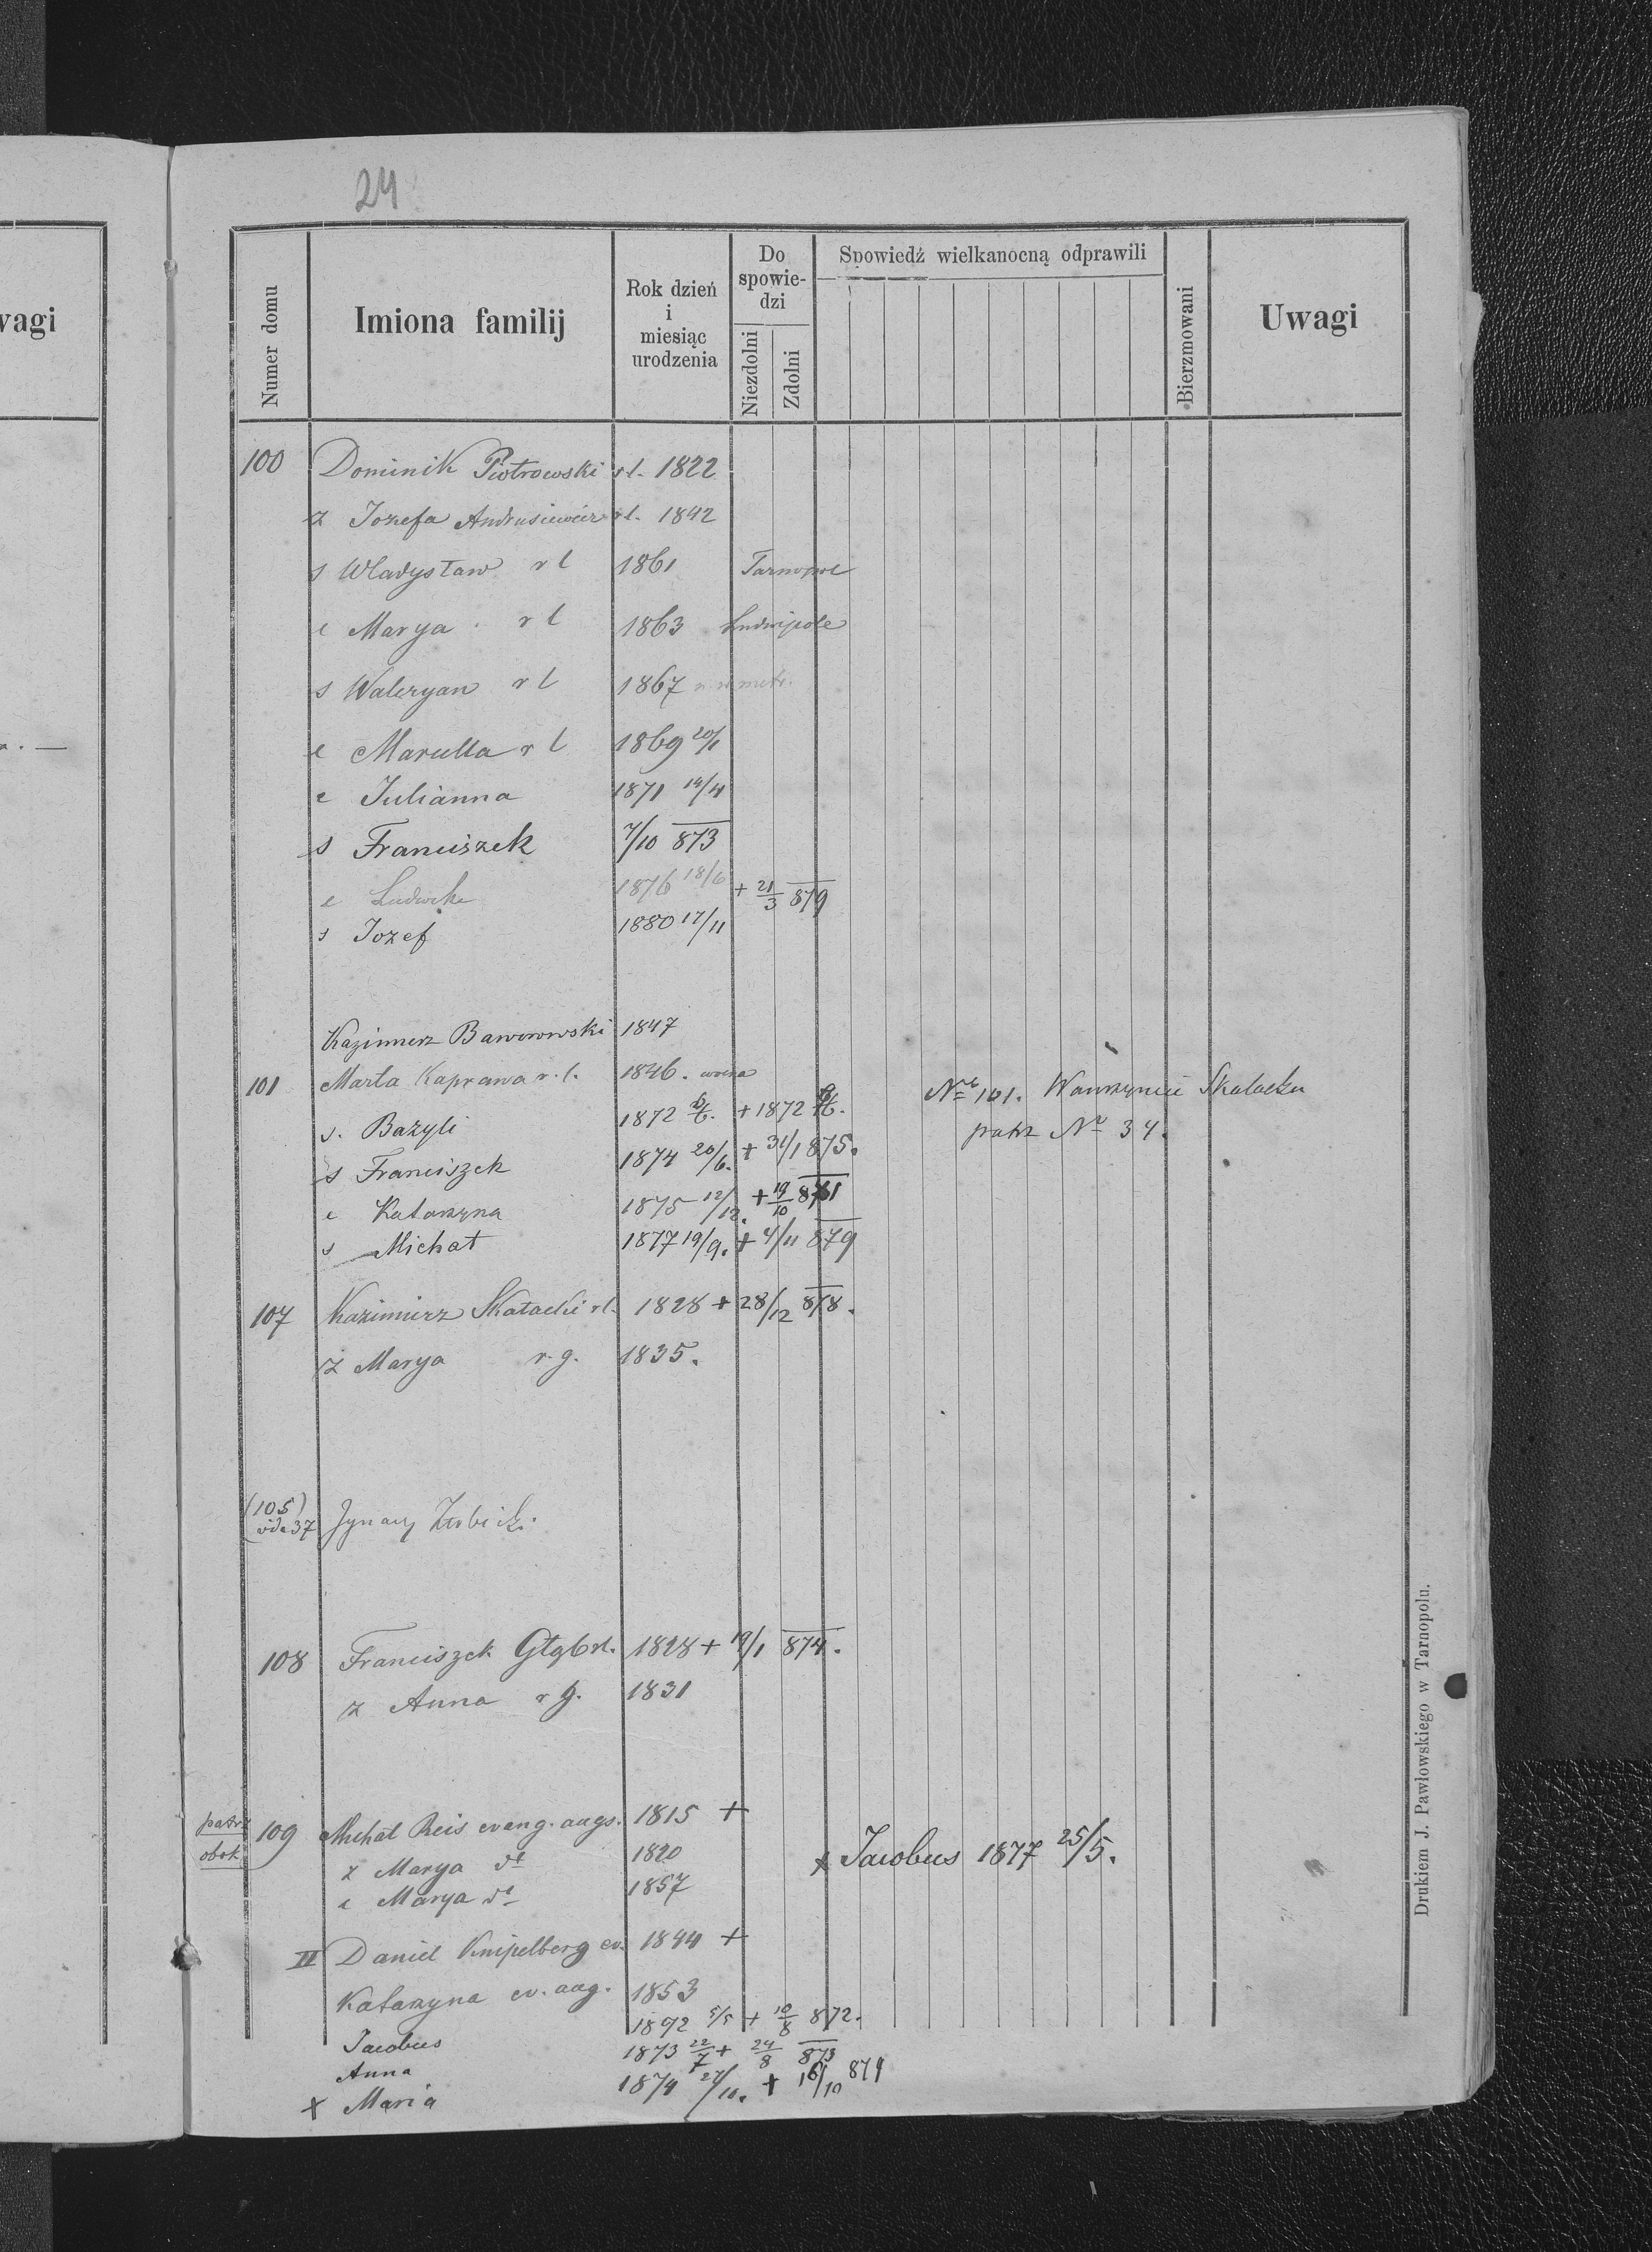 24
wagi
Numer domu
Imiona familij
Rok dzień i miesiąc urodzenia
Do spowiedzi
Niezdolni
Zdolni
Spowiedź wielkanocną odprawili
Bierzmowani
Uwagi
100 Dominik Piotrowski rl. 1822
z Jozefa Andrusiewicz rl. 1842
s Władysław rl 1861 Tarnopol
c Marya rl 1863 Ludwipole
s Waleryan rl 1867
c Marcella rl 1869 20/1
c Julianna 1871 14/4
s Franciszek 7/10 873
c Ludwika 1876 18/6 + 21/3 879
s Jozef 1880 17/11
Kazimierz Baworowski 1847
101 Marta Kaprawa r.l. 1846.
s. Bazyli 1872 + 1872
s Franciszek 1874 20/6. + 31/1 875.
c Katarzyna 1875 12/12. + 19/10
s Michał 1877 19/9. + 4/11 879
No 101. Wawrzyniec Skałacki
patrz No 34.
107 Kazimierz Skałacki rl. 1828 + 28/12 878.
z Marya r.g. 1835.
(105) vide 37 Ignacy
108 Franciszek Głąb rl. 1828 + 19/1 874.
z Anna r g. 1831
patrz obok
109 Michał Reis evang. augs. 1815 +
z Marya dº 1820
c Marya dº 1857
x Jacobus 1877 25/5.
II Daniel Knipelberg ev. 1844 +
Katarzyna ev. aug. 1853
Jacobus 1892 5/5 + 10/8 872.
Anna 1873 22/7 + 24/8 873
x Maria 1874 27/10. + 16/10 879
Drukiem J. Pawłowskiego w Tarnopolu.